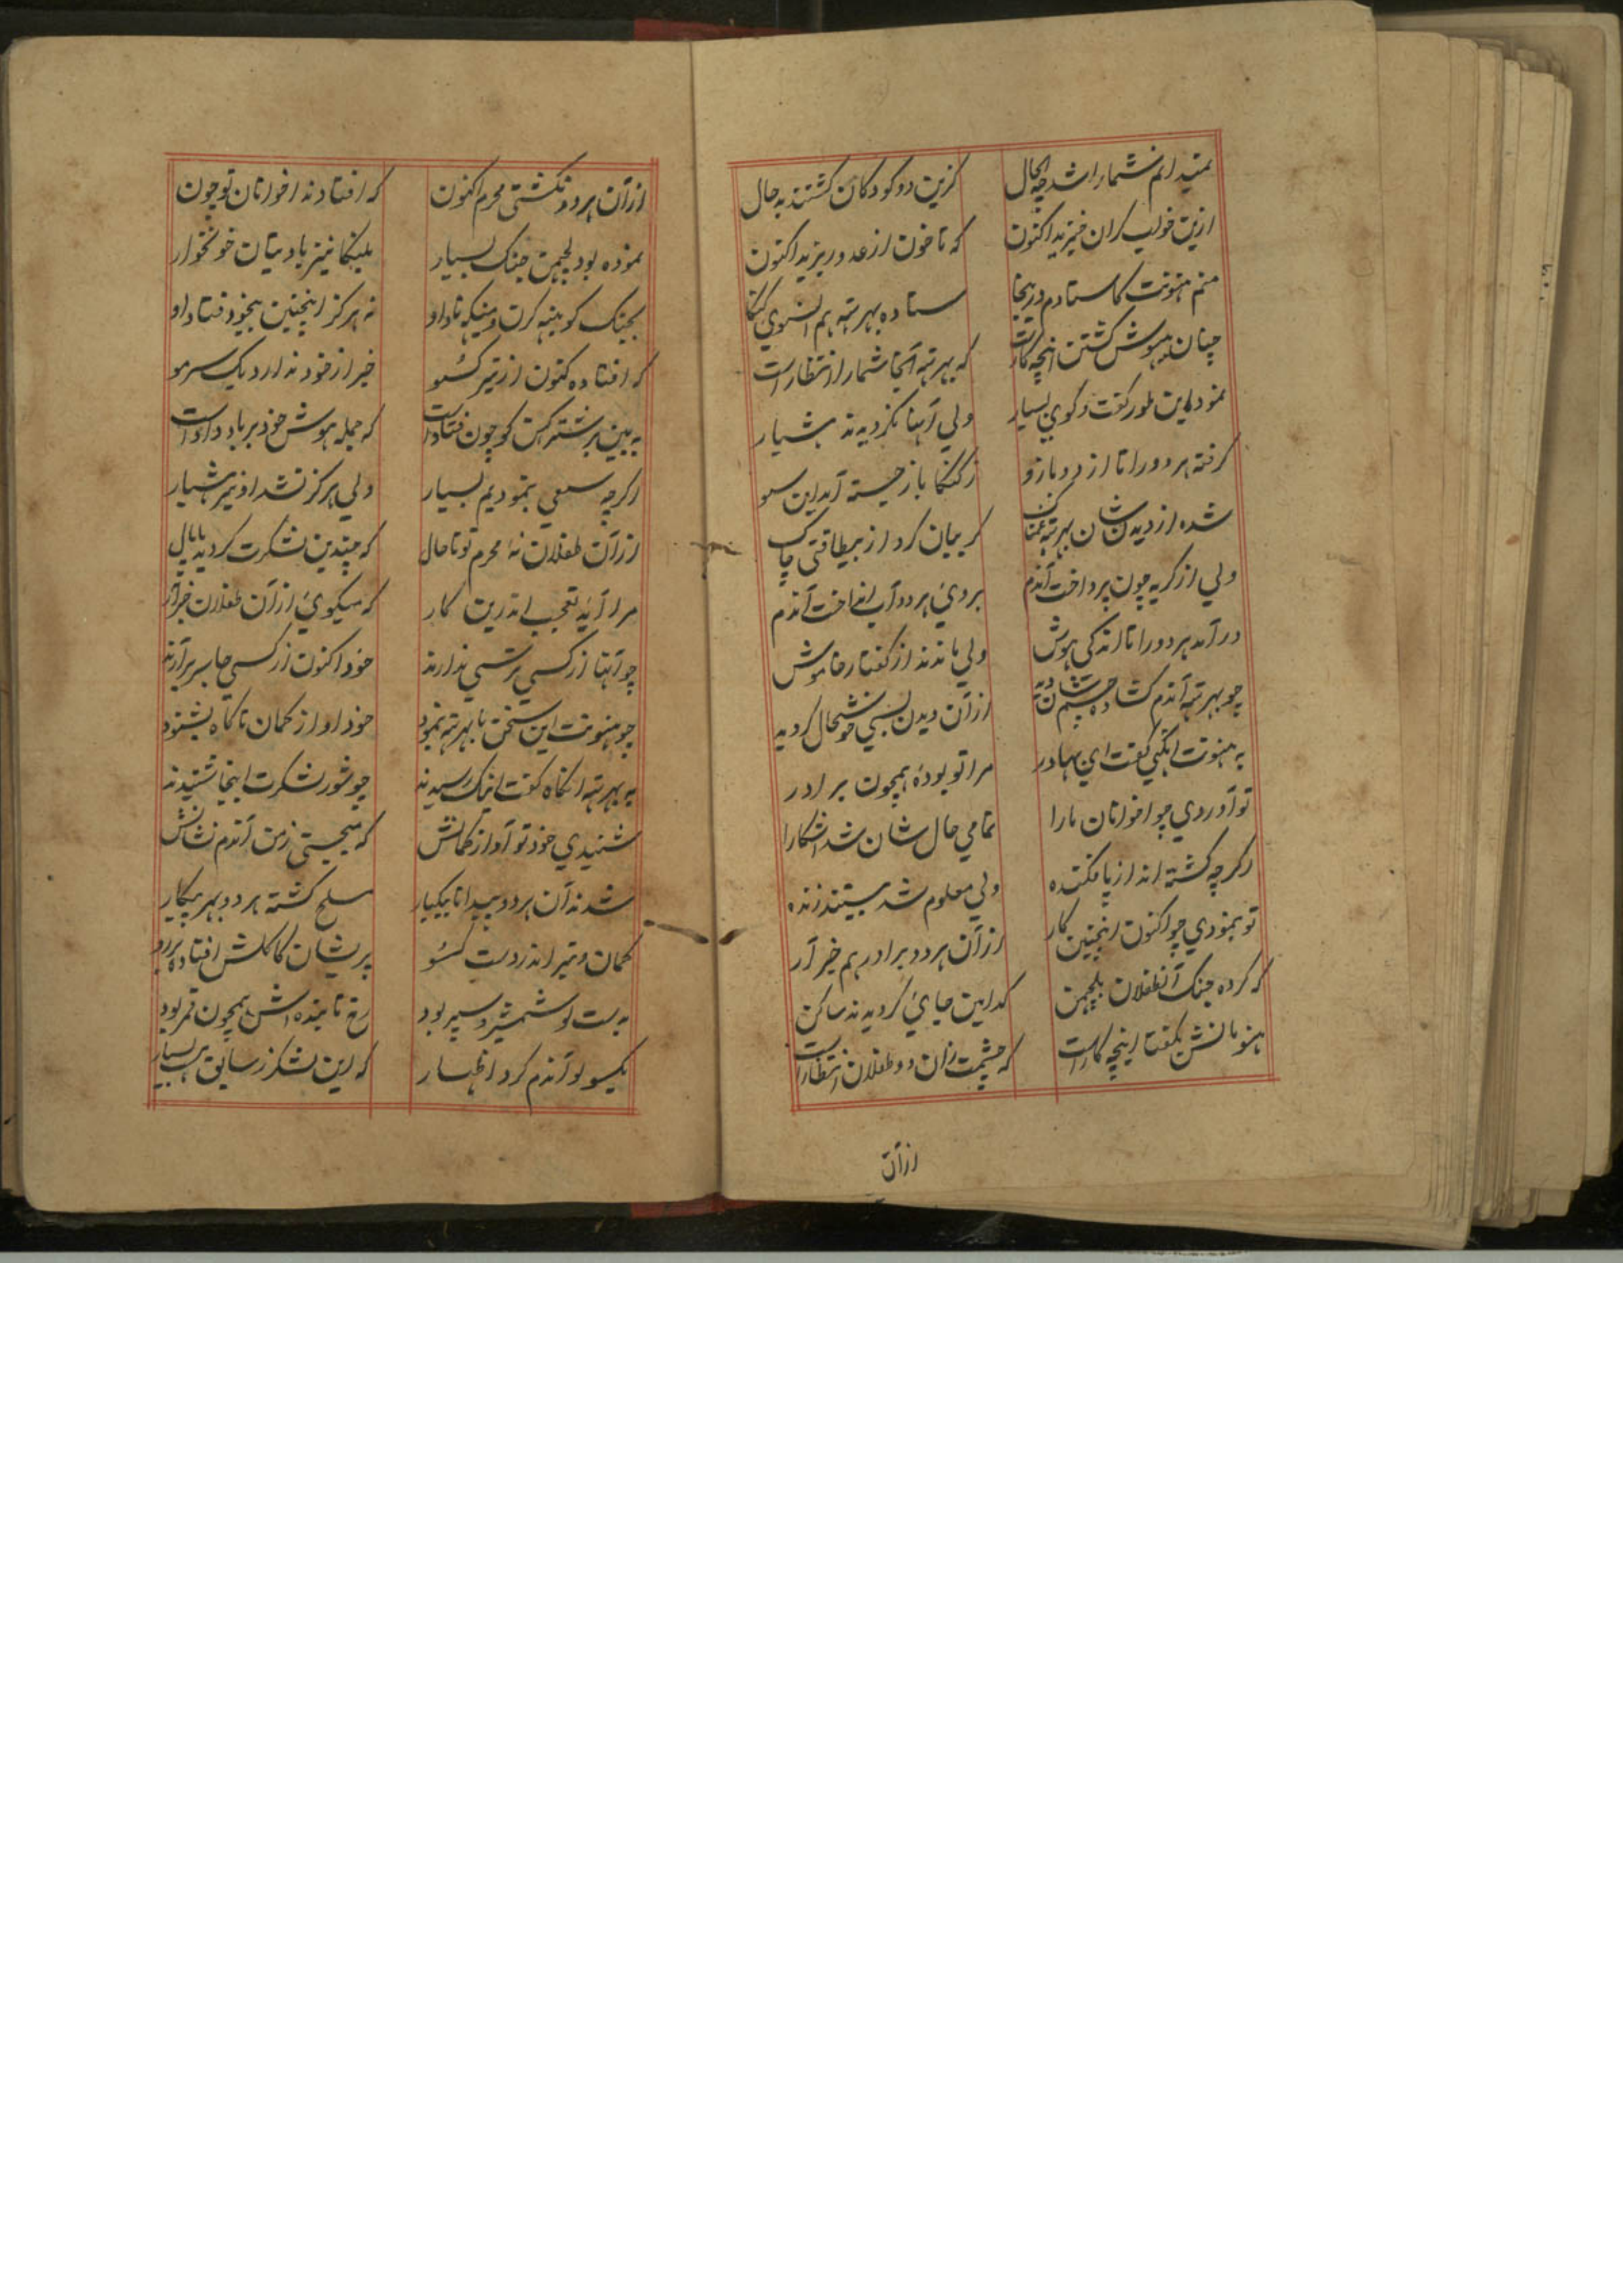 نمیدانم شمارا شد چه الحال کزین دو کودکان گشتند به حال
ازین خواب کران خیزید اکنون که تا خون از عدو ریزید اکنون
منم هنونت کاستادم دریخا ستاده بهرته هم انسوی کنکا
چنان بیهوش گشتن اینچه کارست که بهرته آنجا شمارا انتظارست
نمود این طور گفت و گوی بسیار ولی آنها نگردیدند هشیار
گرفته هر دو را تا از دو بازو ز کنکا باز جسته آمد این سو
شده از دیدن شان بهرته غمناک گریبان کرد از بیطاقتی چاک
ولی از گریه چون پرداخت آندم بروی هر دو آب انداخت آندم
در آمد هر دو را تا اندکی هوش ولی ماندند از گفتار خاموش
چو بهرته آندم کشاده چشم شان دید ازان دیدن بسی خوشحال گردید
به هنونت انگهی گفت ای بهادر مرا تو بوده همچون برادر
تو آوردی چو اخوانان مارا تمامی حال شان شد آشکارا
اگرچه کشته اند از پا فکنده ولی معلوم شد هستند زنده
تو بنمودی چو اکنون اینچنین کار ازان هر دو برادر هم خبر آر
که کرده جنک آنطفلان بلچمن کدامین جای گردیدند ساکن
هنومانش بگفتا اینچه کارست که چشمت زان دو طفلان انتظارست
ازان
ازان هر دو نگشتی محرم اکنون که افتادند اخوانان تو چون
نموده بود لچمن جنک بسیار بلنکا نیز با دیتان خونخوار
بجنک کوبینه کرن و میکهناد او نه هرگز اینچنین بیخود فتاد او
که افتاده کنون از تیر کسو خبر از خود ندارد یک سر مو
ببین بر شترکهن کو چون فتادست که جمله هوش خود بر باد دادست
اگرچه سعی بنمودیم بسیار ولی هرگز نشد او نیز هشیار
ازان طفلان نه محرم تو تا حال که چندین لشکرت گردید پامال
مرا آید تعجب اندرین کار که میگوئی ازان طفلان خبر آر
چو آنها از کسی ترسی ندارند خود اکنون از کسی جا سر برآرند
چو هنونت این سخن با بهرته نمود خود آواز کمان ناگاه بشنود
به بهرته انگاه گفت اینک رسیدند چو شور لشکرت اینجا شنیدند
شنیدی خود تو آواز کمانش که میجستی ز من آندم نشانش
شدند آن هر دو پیدا تا بیکبار مسلح گشته هر دو بهر پیکار
کمان و تیر اندر دست کسو پریشان کاکلش افتاده بر رو
بدست لو شمشیر و سپر بود رخ تابنده اش همچون قمر بود
بکیسو لو آندم کرد اظهار که این لشکر ز سابق هست بسیار